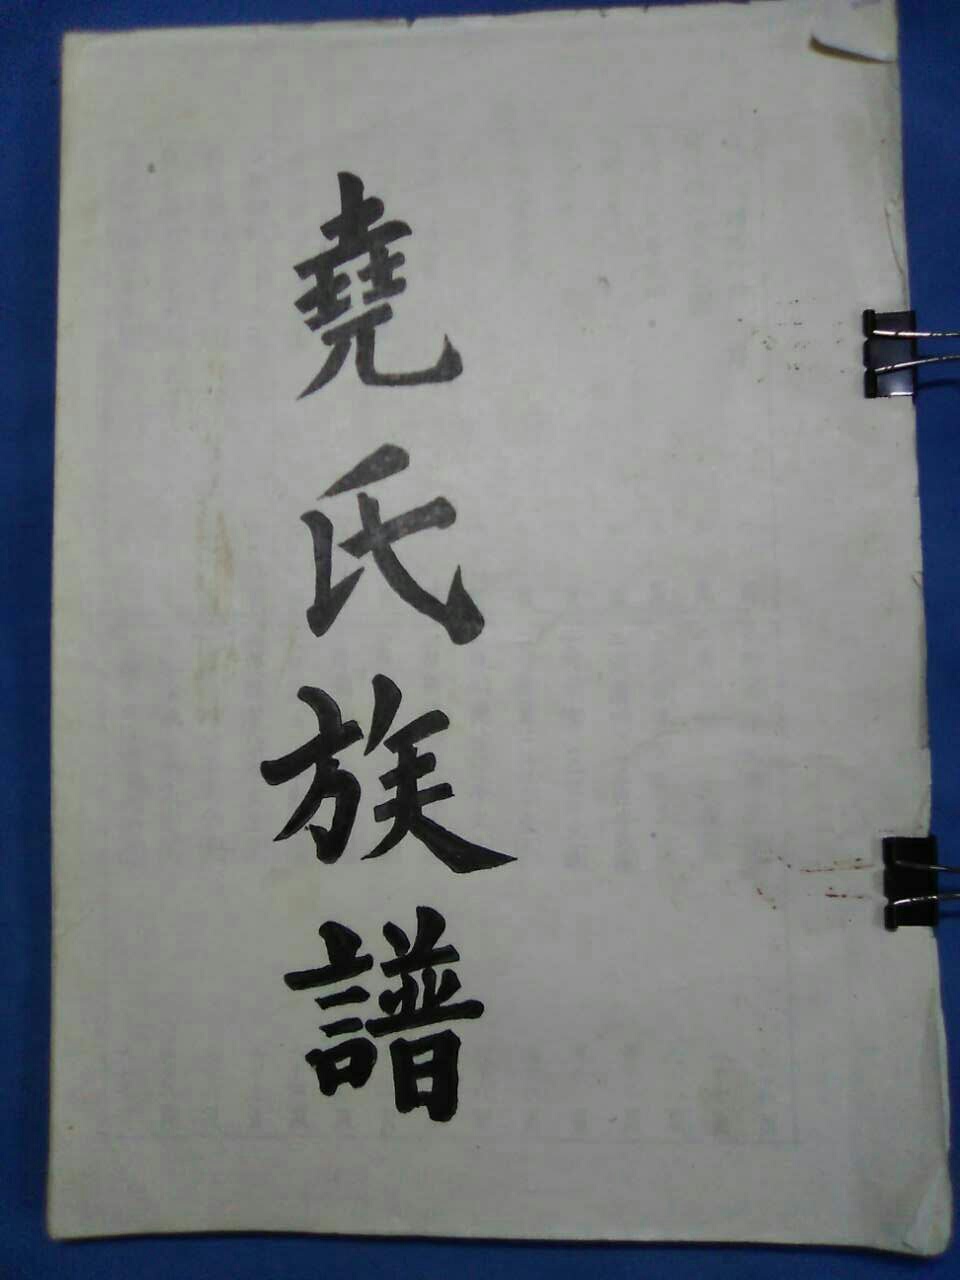 堯氏族譜